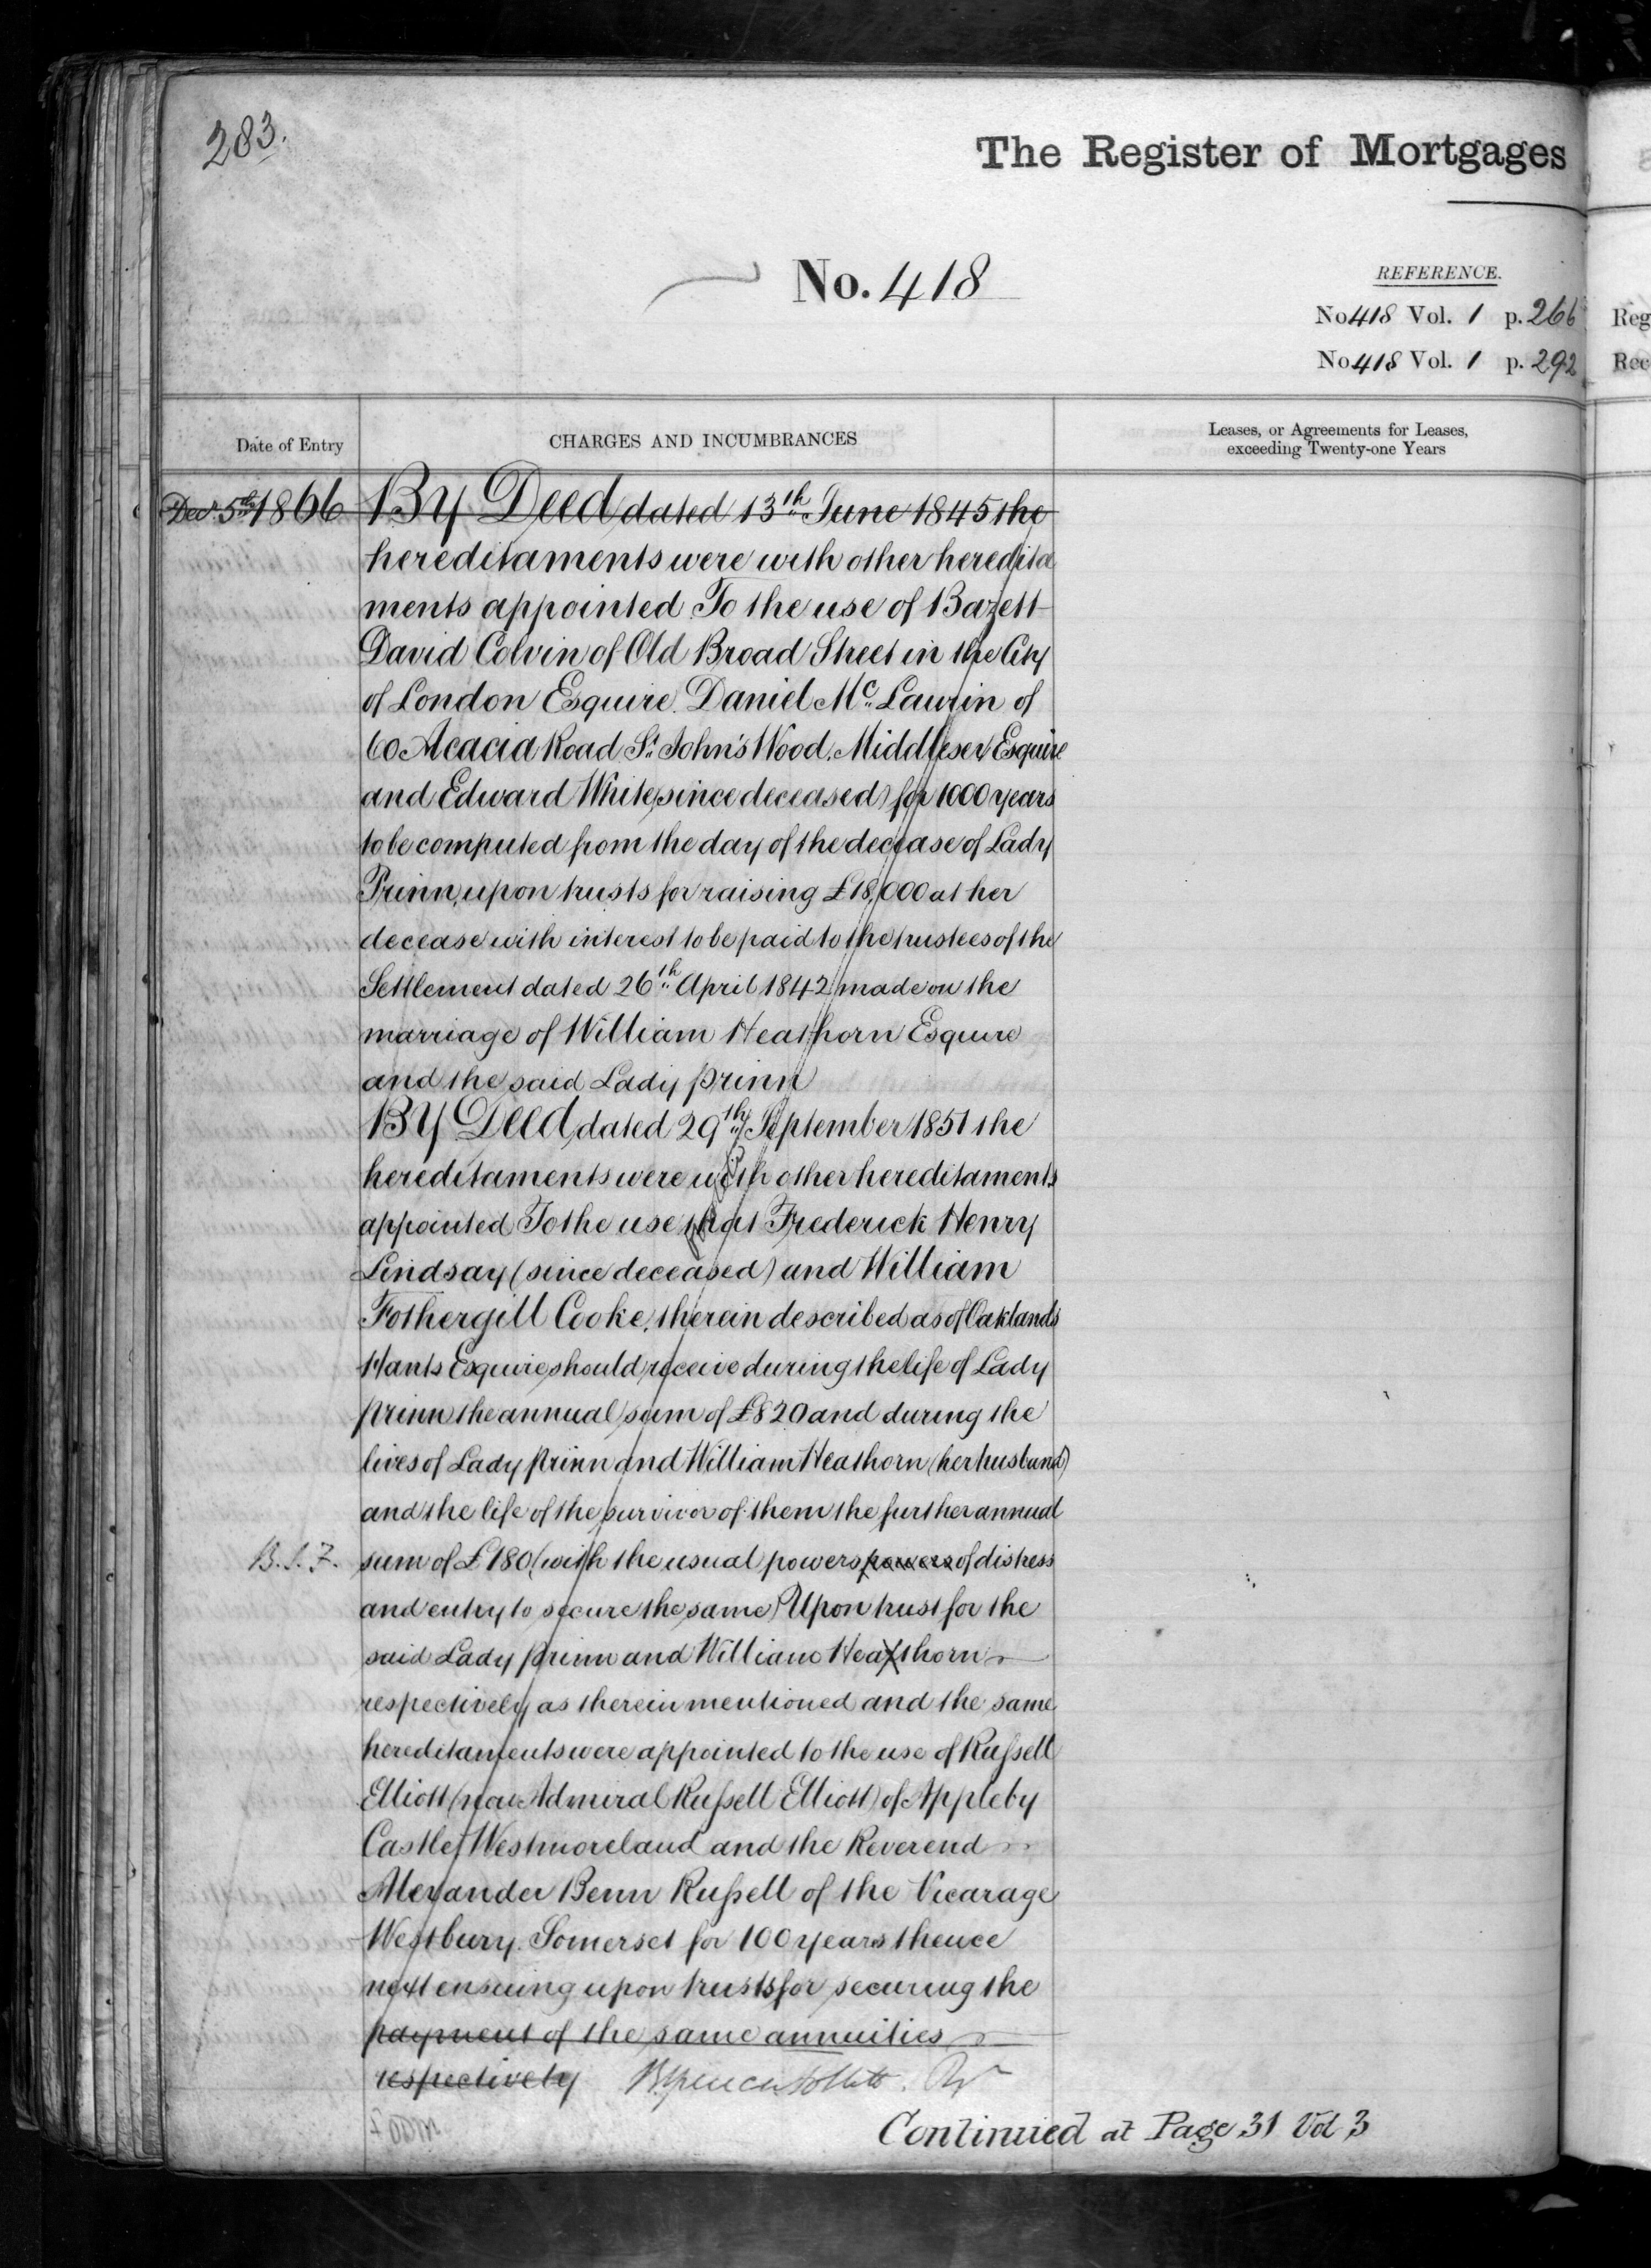 283.
The Register of Mortgages
No. 418
REFERENCE.
No 418 Vol. 1 p. 266
No 418 Vol. 1 p. 292
Reg
Rec
Date of Entry
CHARGES AND INCUMBRANCES
Leases, or Agreements for Leases,
exceeding Twenty-one Years
Decr. 5th 1866
By Deed dated 13th June 1845 the
hereditaments were with other heredita
ments appointed To the use of Bazett
David Colvin of Old Broad Street in the City
of London Esquire. Daniel Mc. Laurin of
60 Acacia Road St. John's Wood. Middlesex Esquire
and Edward White (since deceased) for 1000 years
to be computed from the day of the decease of Lady
Prinn, upon trusts for raising £18,000 at her
decease with interest to be paid to the trustees of the
Settlement dated 26th April 1842 made on the
marriage of William Heathorn Esquire
and the said Lady Prinn
By Deed dated 29th September 1851 the
hereditaments were with other hereditaments
appointed To the use that Frederick Henry
Lindsay (since deceased) and William
Fothergill Cooke, therein described as of Oaklands
Hants Esquire should receive during the life of Lady
Prinn the annual sum of £820 and during the
lives of Lady Prinn and William Heathorn (her husband)
and the life of the survivor of them the further annual
B.S.F.
sum of £180 (with the usual powers powers of distress
and entry to secure the same) Upon trust for the
said Lady Prinn and William Heathorn
respectively as therein mentioned and the same
hereditaments were appointed to the use of Russell
Elliott (now Admiral Russell Elliott) of Appleby
Castle, Westmoreland and the Reverend
Alexander Benn Russell of the Vicarage
Westbury. Somerset for 100 years thence
next ensuing upon trusts for securing the
payment of the same annuities
respectively
Continued at Page 31 Vol 3